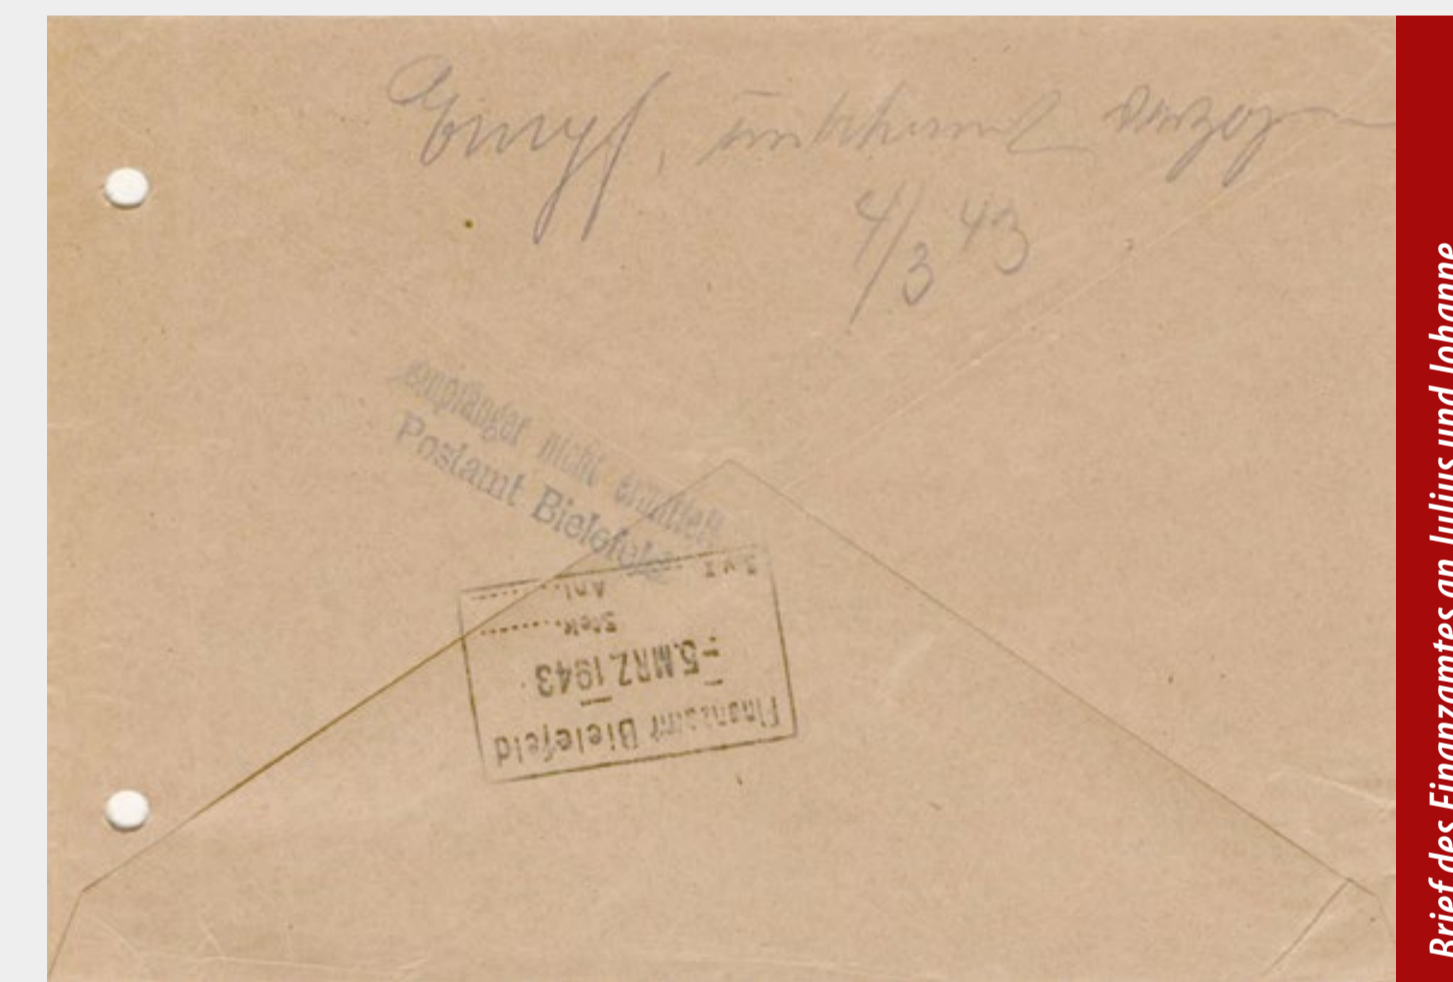 Empf, unbekannt verzogen
4/3 43
empfänger nicht ermittelt
Postamt Bielefeld
Finanzamt Bielefeld
-5. MRZ. 1943
Stck.........
Anl.........
Brief des Finanzamtes an Julius und Johanne